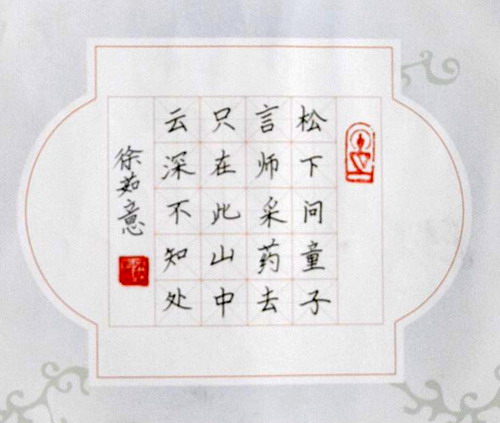 松下问童子
言师采药去
只在此山中
云深不知处
徐茹意